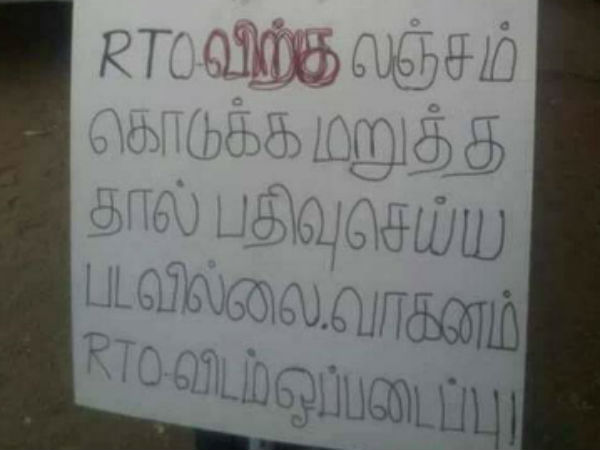 RTO-விற்கு லஞ்சம்
கொடுக்க மறுத்த
தால் பதிவுசெய்ய
படவில்லை.வாகனம்
RTO-விடம்ஒப்படைப்பு!